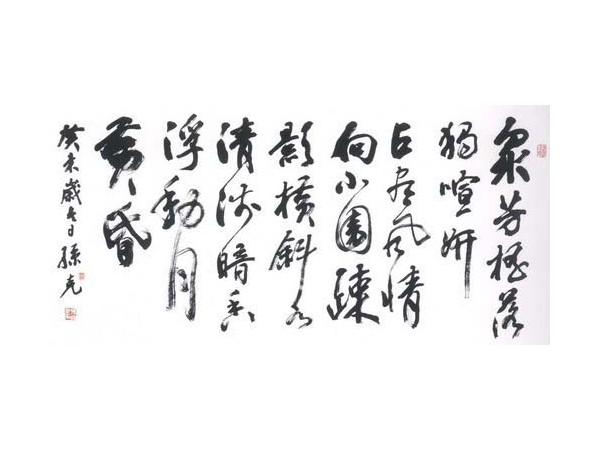 眾芳搖落
獨喧妍
占盡風情
向小園疎
影橫斜水
清淺暗香
浮動月
黃昏
癸未歲冬日孫克